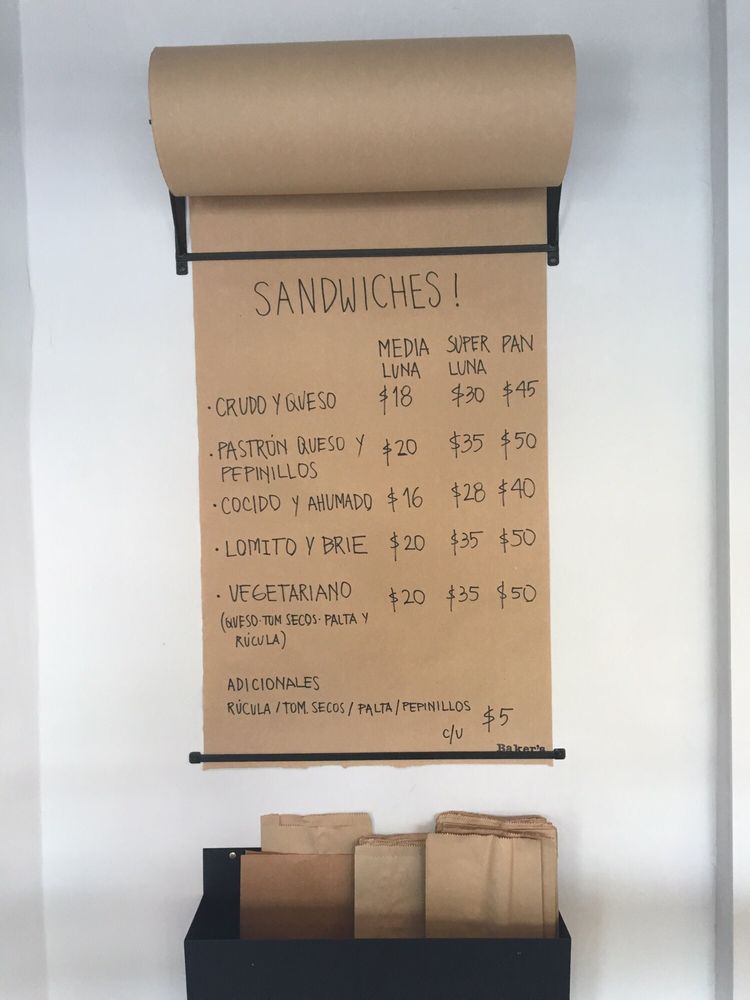 SANDWICHES!
MEDIA LUNA SUPER LUNA PAN
· CRUDO Y QUESO $18 $30 $45
· PASTRÓN QUESO Y $20 $35 $50
PEPINILLOS
· COCIDO Y AHUMADO $16 $28 $40
· LOMITO Y BRIE $20 $35 $50
· VEGETARIANO $20 $35 $50
(QUESO·TOM SECOS·PALTA Y
RÚCULA)
ADICIONALES
RÚCULA / TOM. SECOS / PALTA / PEPINILLOS
c/u $5
Baker's